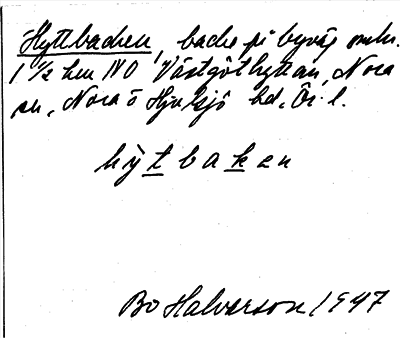 Hyttbacken, backe på byväg omkr.
1 ½ km NO Västgöthyttan, Nora
sn, Nora o Hjulsjö hd, Ör. l.
hy̆tbaken
Bo Halvarson 1947